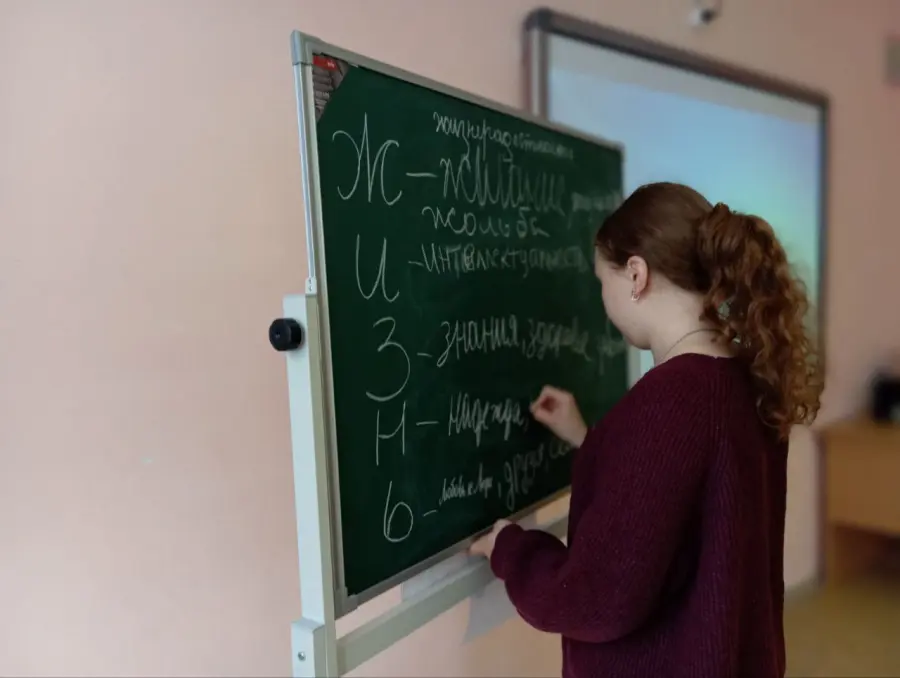 жизнерадостность
Ж – желание,
жольба
И – интеллектуальность
З – знания, здоровье
Н – надежда,
Ь – любовь к
, друзья,